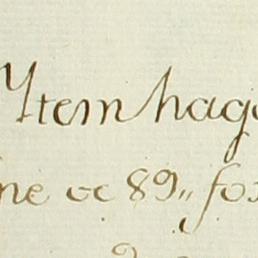 Ytem hago
ne de 89,, fo